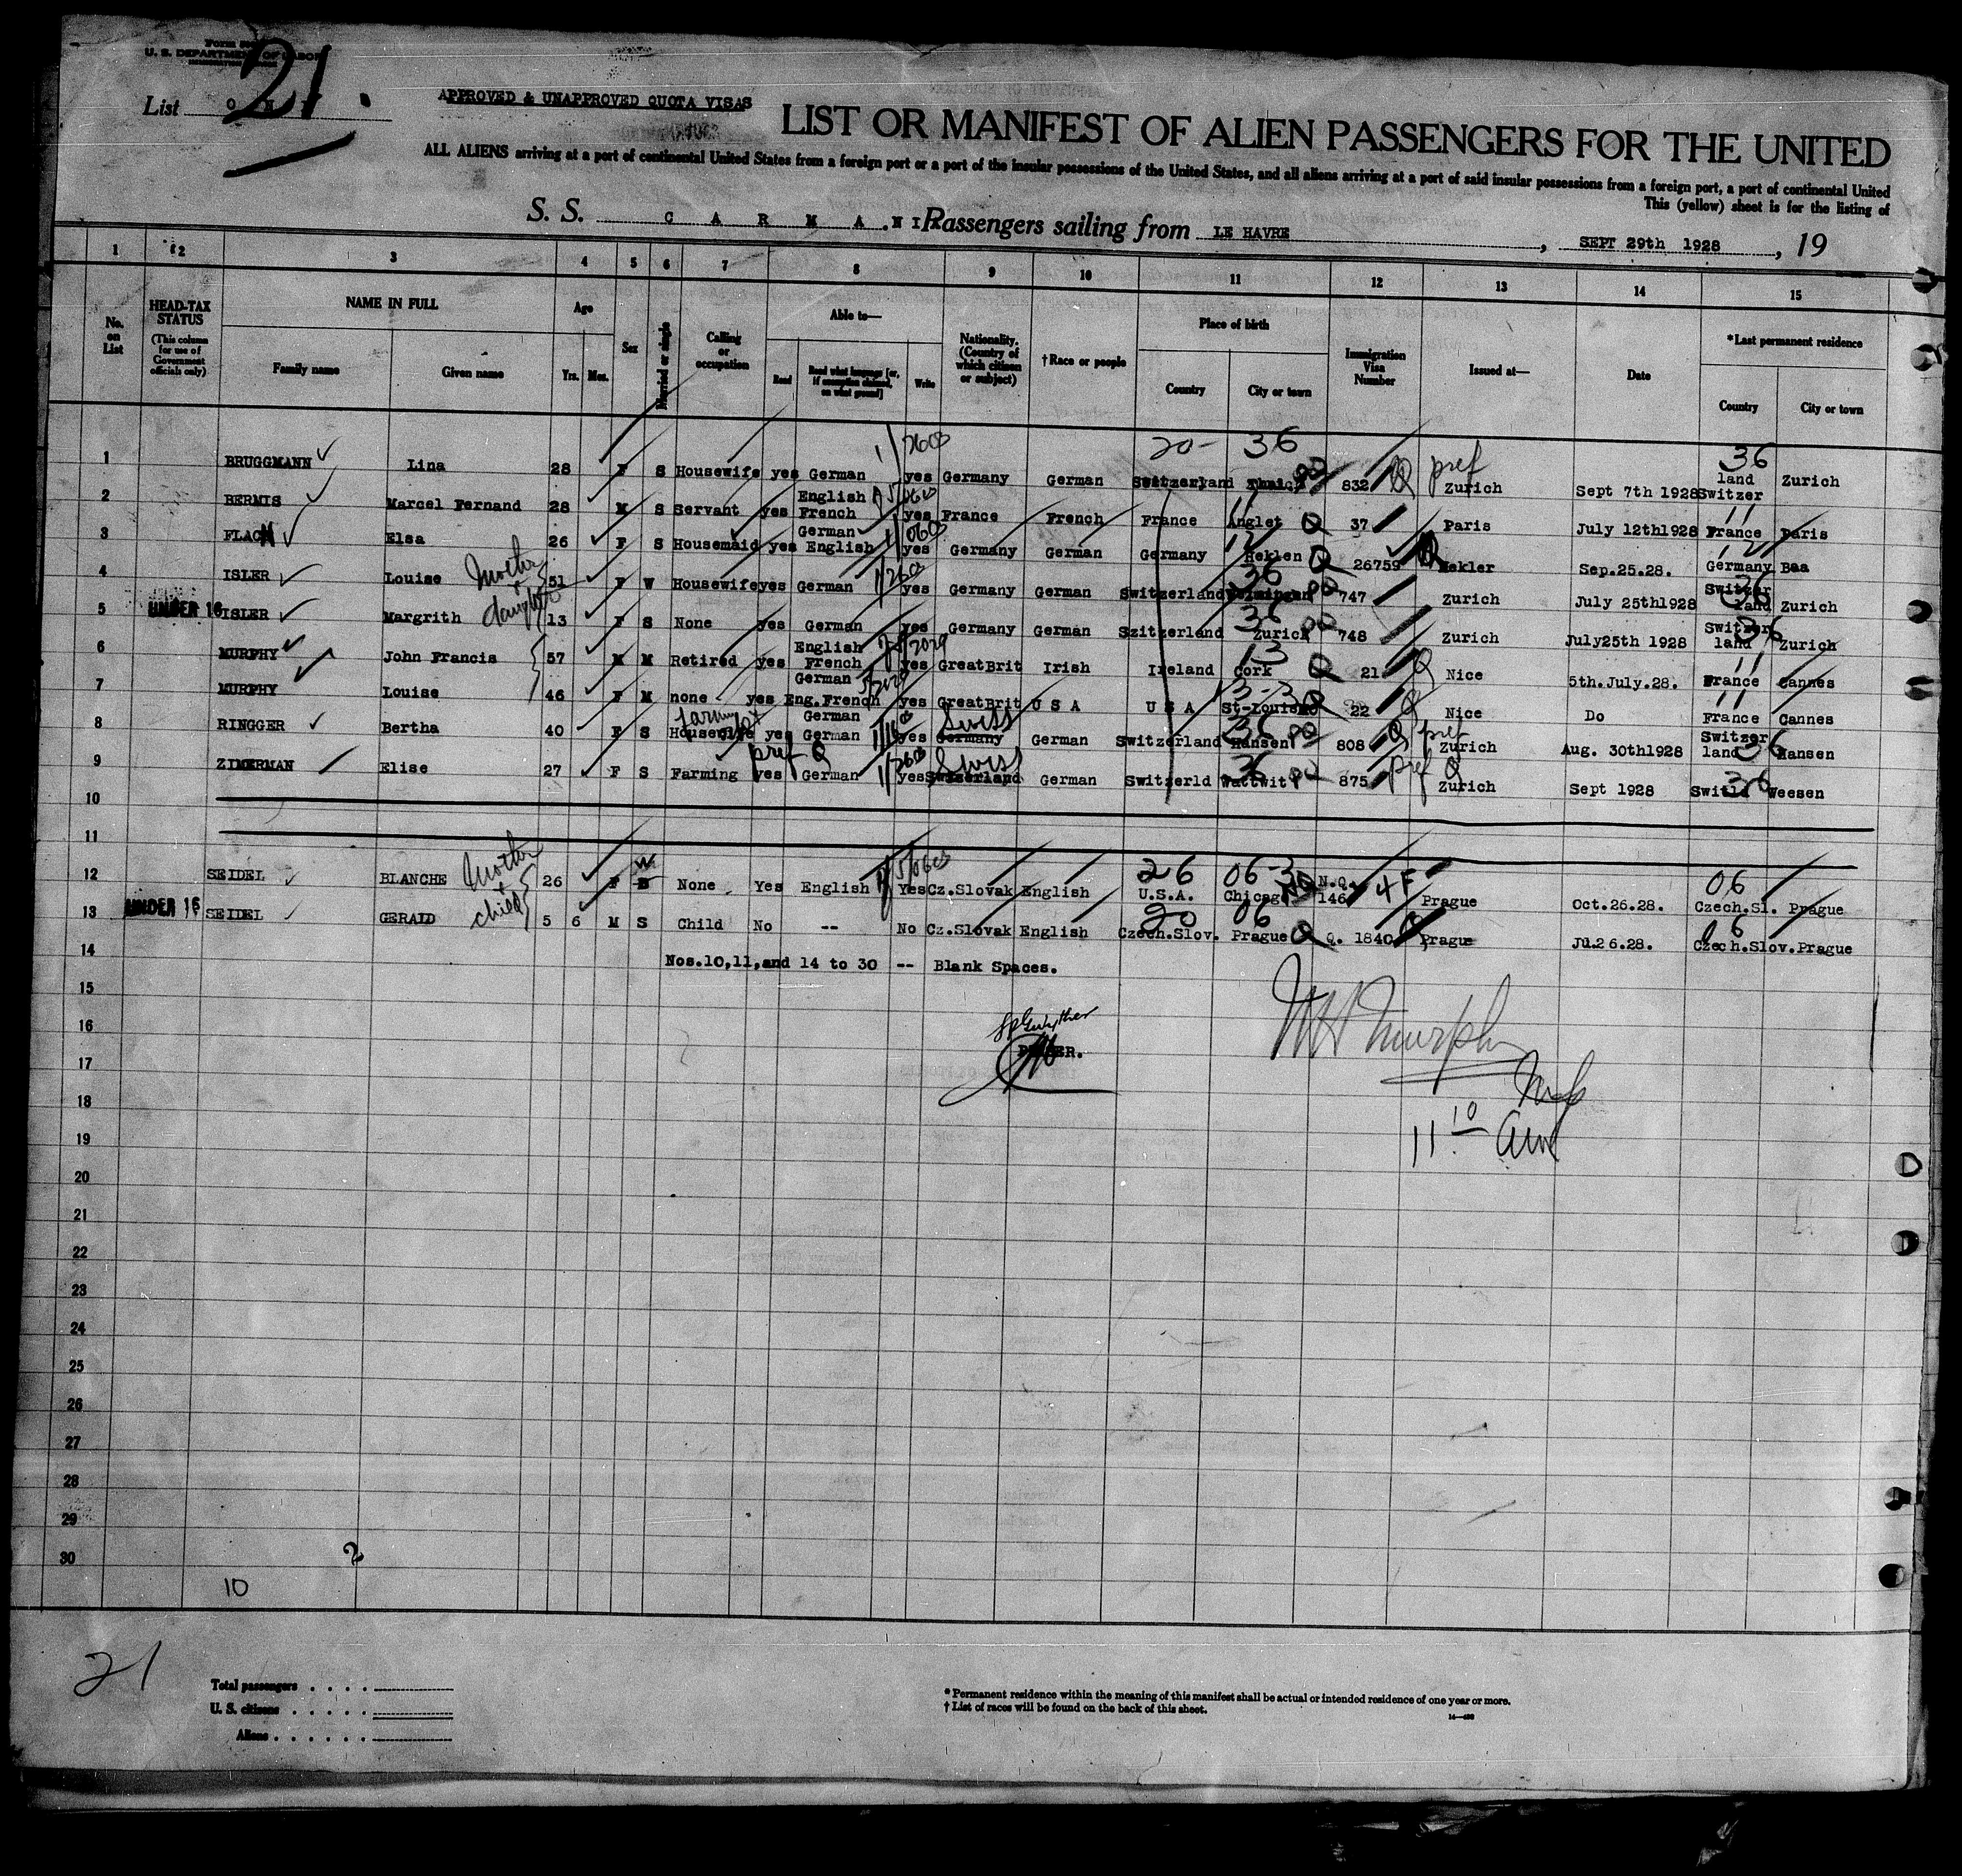 U. S. DEPARTMENT OF LABOR
21.
List O N
APPROVED & UNAPPROVED QUOTA VISAS
LIST OR MANIFEST OF ALIEN PASSENGERS FOR THE UNITED
ALL ALIENS arriving at a port of continental United States from a foreign port or a port of the insular possessions of the United States, and all aliens arriving at a port of said insular possessions from a foreign port, a port of continental United
This (yellow) sheet is for the listing of
S. S. C A R M A N I Passengers sailing from LE HAVRE , SEPT 29th 1928 , 19
1 2 3 4 5 6 7 8 9 10 11 12 13 14 15
No. on List
HEAD-TAX STATUS (This column for use of Government officials only)
NAME IN FULL
Family name Given name
Age Yrs. Mos.
Sex
Married or single
Calling or occupation
Able to—
Read Read what language [or, if exemption claimed, on what ground] Write
Nationality. (Country of which citizen or subject)
†Race or people
Place of birth
Country City or town
Immigration Visa Number
Issued at—
Date
*Last permanent residence
Country City or town
20- 36 36
1 BRUGGMANN Lina 28 F S Housewife yes German yes Germany German Switzerland 832 pref Zurich Sept 7th 1928 Switzer land Zurich
2 BERMIS Marcel Fernand 28 M S Servant yes English French yes France French France Anglet Q 37 Paris July 12th1928 France Paris
3 FLACH Elsa 26 F S Housemaid yes German English yes Germany German Germany Heklen Q 26759 Hekler Sep.25.28. Germany Baa
4 ISLER Louise Mother + 51 F W Housewife yes German yes Germany German Switzerland 747 Zurich July 25th1928 Switzer land Zurich
5 UNDER 16 ISLER Margrith daughter 13 F S None yes German yes Germany German Szitzerland Zurich 748 Zurich July25th 1928 Switzer land Zurich
6 MURPHY John Francis 57 M M Retired yes English French yes GreatBrit Irish Ireland Cork Q 21 Q Nice 5th.July.28. France Cannes
7 MURPHY Louise 46 F M none yes German Eng.French yes GreatBrit U S A U S A St-Louis 22 Nice Do France Cannes
8 RINGGER Bertha 40 F S Housewife yes German German yes Germany Swiss German Switzerland Hansen 808 Q pref Zurich Aug. 30th1928 Switzer land Hansen
9 ZIMERMAN Elise 27 F S Farming pref Q yes German yes Switzerland Swiss German Switzerld Wattwil 875 pref Q Zurich Sept 1928 Switld Weesen
10
11
12 SEIDEL BLANCHE Mother + 26 F M None Yes English Yes Cz.Slovak English 26 U.S.A. 06-3 Chicago N.Q. 146 4F Prague Oct.26.28. 06 Czech.Sl. Prague
13 UNDER 16 SEIDEL GERALD child 5 6 M S Child No -- No Cz.Slovak English 20 Czech.Slov. 06 Prague Q Q. 1840 Prague Jl.26.28. 06 Czech.Slov.Prague
14 Nos.10,11,and 14 to 30 -- Blank Spaces.
15
16
PURSER.
17
18
11 10 am
19
20
21
22
23
24
25
26
27
28
29
30
2
10
21
Total passengers
U. S. citizens
Aliens
*Permanent residence within the meaning of this manifest shall be actual or intended residence of one year or more.
†List of races will be found on the back of this sheet.